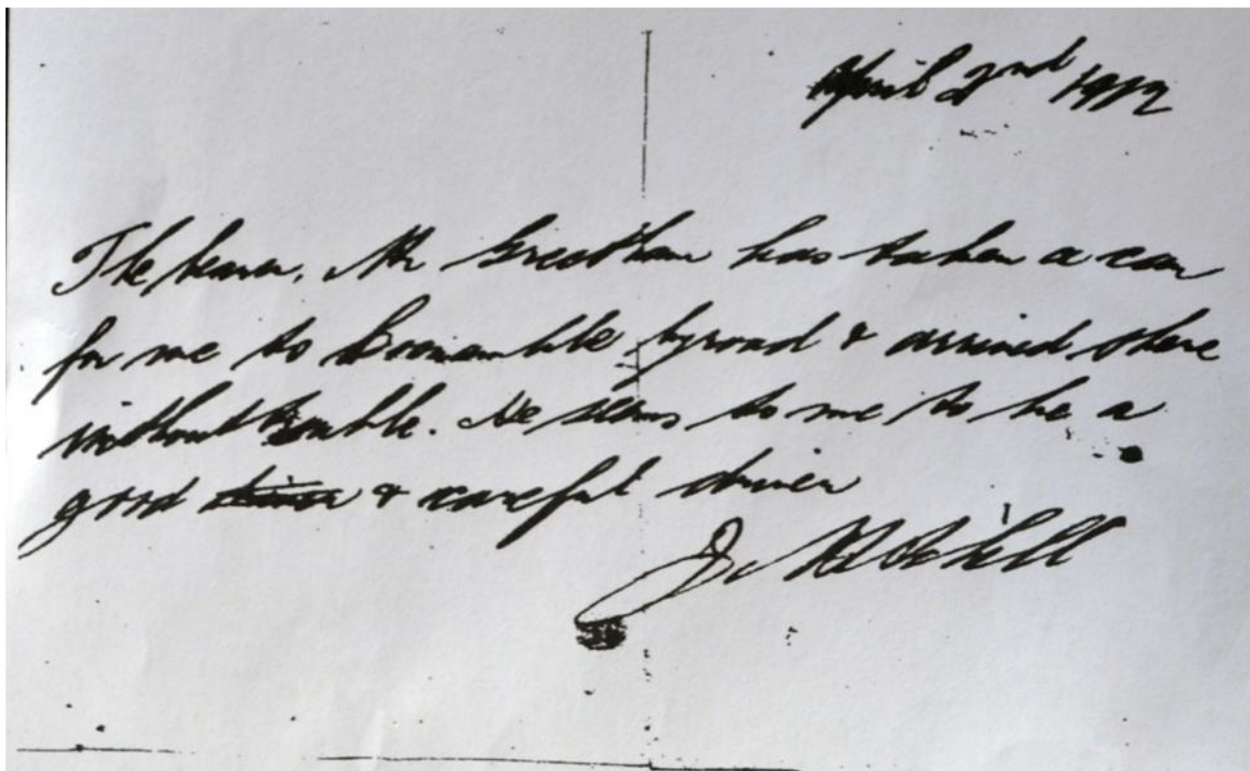 April 2nd 1912
The bearer, Mr Greetham has taken a car
for me to Boomamble by road & arrived there
without trouble. He seems to me to be a
good & careful driver
J.